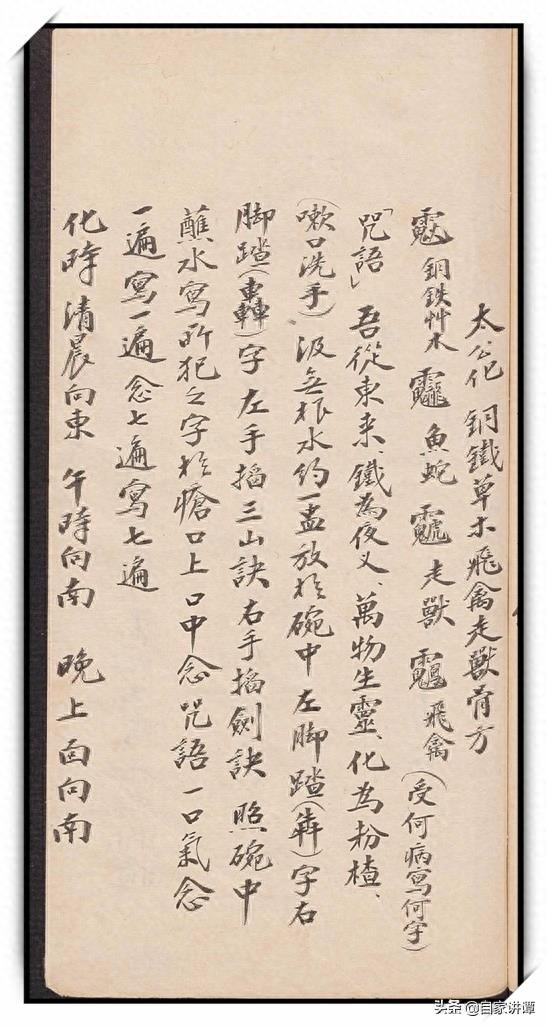 太公化 銅鐵草木飛禽走獸骨方
銅鉄艸木 魚蛇 走獸 飛禽 (受何病寫何字)
「咒語」 吾從東来、鐵為夜义、萬物生靈、化為粉楂、
(嗽口洗手) 汲無根水約一盂放於碗中左脚踏(犇)字右
脚踏(轟)字左手搯三山訣右手搯劍訣 照碗中
蘸水寫所犯之字於瘡口上口中念咒語一口氣念
一遍寫一遍念七遍寫七遍
化時清晨向東 午時向南 晚上面向南
头条 @自家讲谭